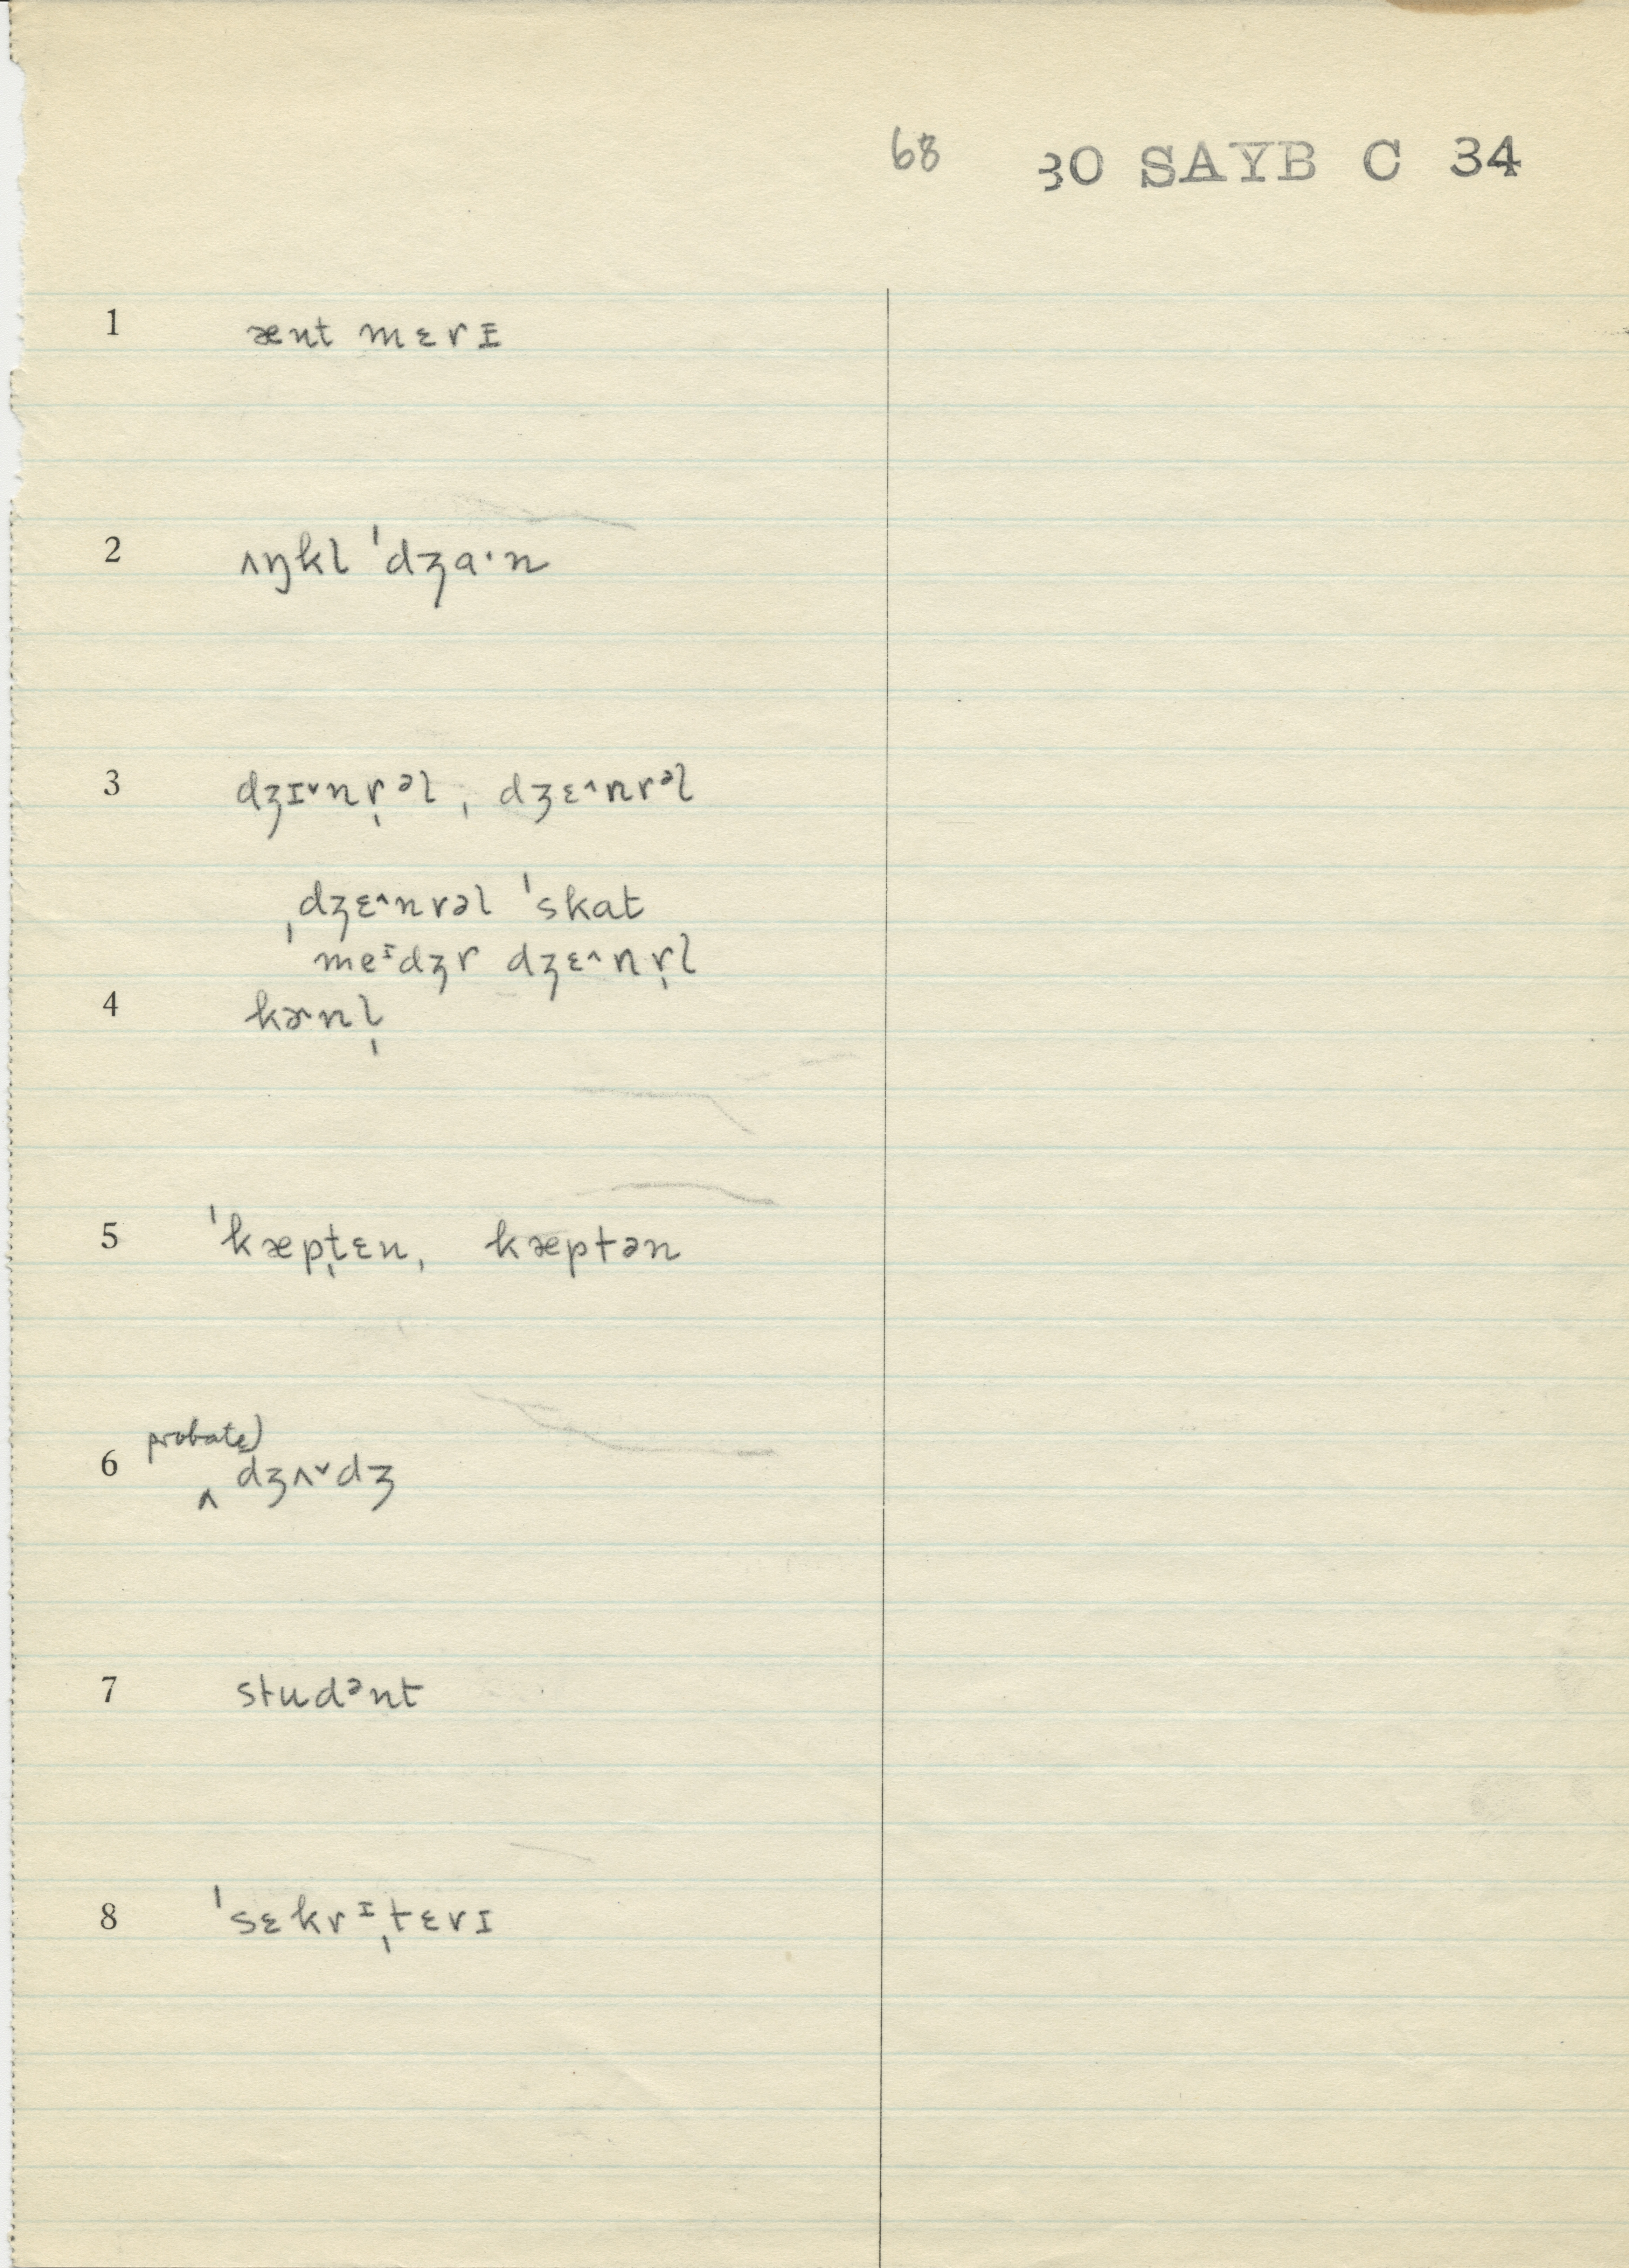 68 30 SAYB C 34
1 ænt mɛrɪ
2 ʌŋkl ˈdʒa·n
3 dʒɪ˅nr̩ᵊl, dʒɛ^nrᵊl
ˌdʒɛ^nrəl ˈskat
ˈmeᶦdʒr dʒɛ^nr̩l
4 kɚnl̩
5 ˈkæpˌtɛn, kæptən
probate)
6 ‸ dʒʌ˅dʒ
7 studᵊnt
8 ˈsɛkrᶦˌtɛrɪ